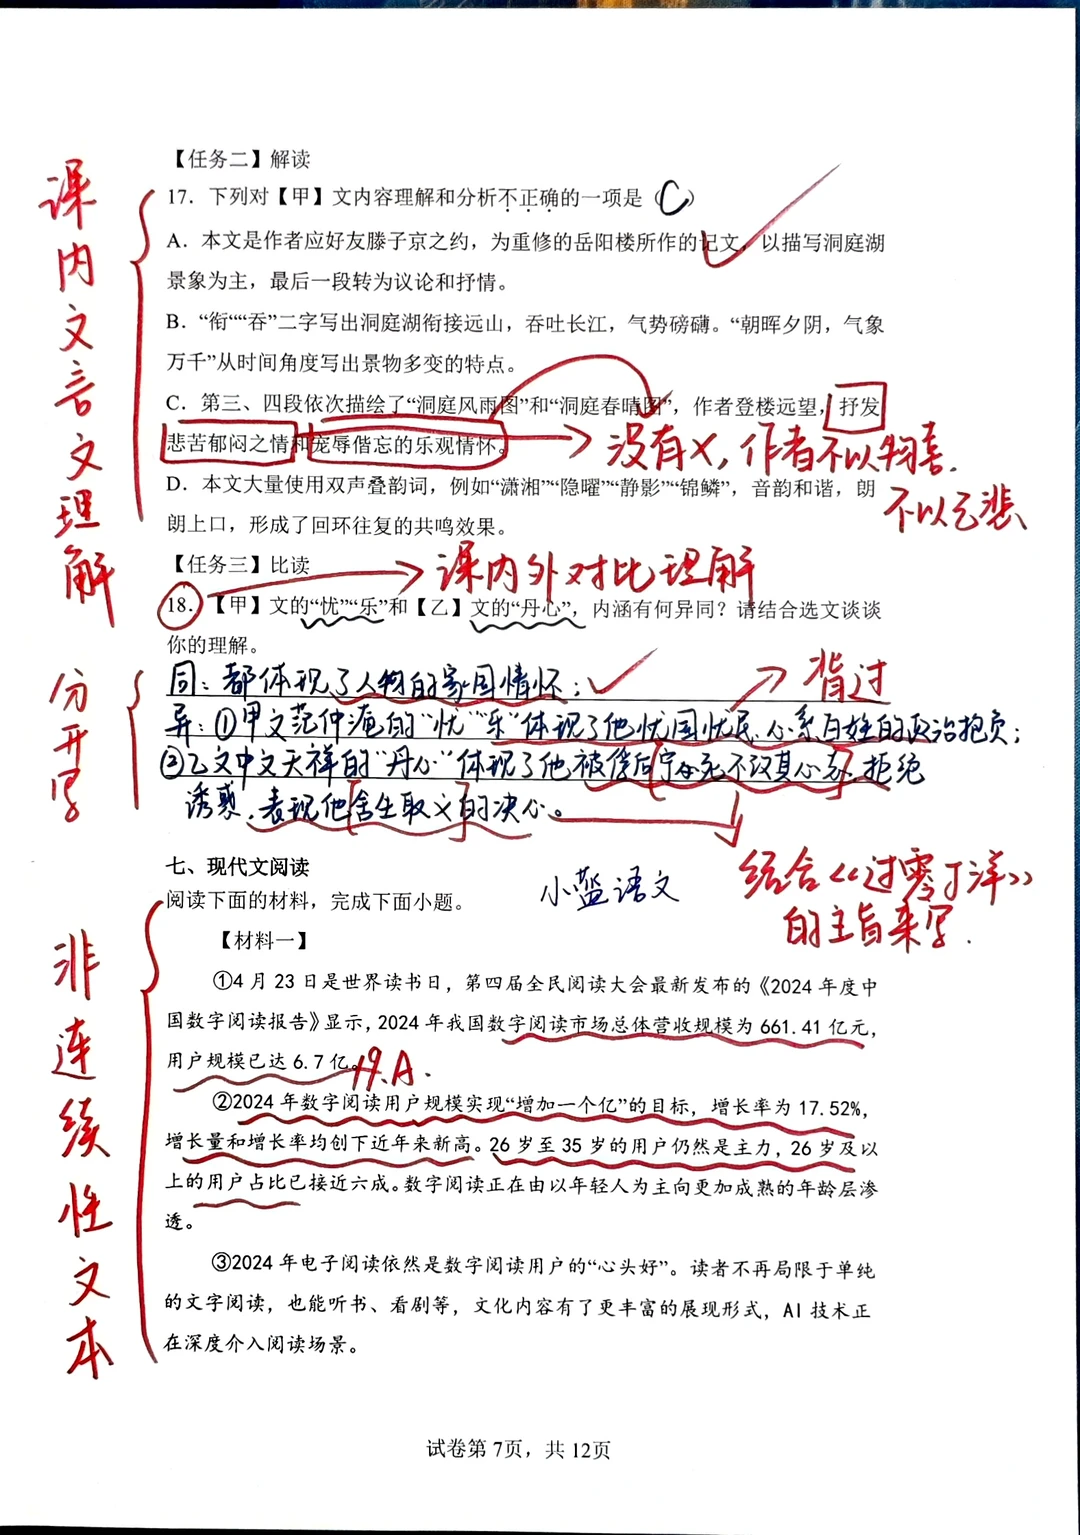 课内文言文理解
【任务二】解读
17．下列对【甲】文内容理解和分析不正确的一项是（C）
A．本文是作者应好友滕子京之约，为重修的岳阳楼所作的记文，以描写洞庭湖
景象为主，最后一段转为议论和抒情。
B．“衔”“吞”二字写出洞庭湖衔接远山，吞吐长江，气势磅礴。“朝晖夕阴，气象
万千”从时间角度写出景物多变的特点。
C．第三、四段依次描绘了“洞庭风雨图”和“洞庭春晴图”，作者登楼远望，抒发
悲苦郁闷之情和宠辱偕忘的乐观情怀。
没有×，作者不以物喜.
不以己悲
D．本文大量使用双声叠韵词，例如“潇湘”“隐曜”“静影”“锦鳞”，音韵和谐，朗
朗上口，形成了回环往复的共鸣效果。
【任务三】比读
课内外对比理解
18．【甲】文的“忧”“乐”和【乙】文的“丹心”，内涵有何异同？请结合选文谈谈
你的理解。
分开写
同：都体现了人物的家国情怀；
背过
异：①甲文范仲淹的“忧”“乐”体现了他忧国忧民、心系百姓的政治抱负；
②乙文中文天祥的“丹心”体现了他被俘后宁死不改其心志，拒绝
诱惑，表现他舍生取义的决心。
结合《过零丁洋》
的主旨来写.
七、现代文阅读
小盔语文
阅读下面的材料，完成下面小题。
非连续性文本
【材料一】
①4月23日是世界读书日，第四届全民阅读大会最新发布的《2024年度中
国数字阅读报告》显示，2024年我国数字阅读市场总体营收规模为661.41亿元，
用户规模已达6.7亿。
19.A.
②2024年数字阅读用户规模实现“增加一个亿”的目标，增长率为17.52%，
增长量和增长率均创下近年来新高。26岁至35岁的用户仍然是主力，26岁及以
上的用户占比已接近六成。数字阅读正在由以年轻人为主向更加成熟的年龄层渗
透。
③2024年电子阅读依然是数字阅读用户的“心头好”。读者不再局限于单纯
的文字阅读，也能听书、看剧等，文化内容有了更丰富的展现形式，AI技术正
在深度介入阅读场景。
试卷第7页，共12页